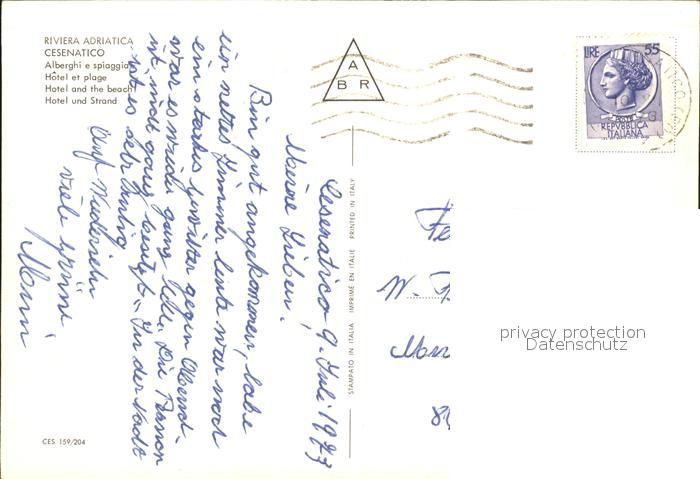 RIVIERA ADRIATICA
CESENATICO
Alberghi e spiaggia
Hôtel et plage
Hotel and the beach
Hotel und Strand
A
B R
LIRE 55
POSTE
REPVBBLICA
ITALIANA
Cesenatico 9. Juli 1973
Meine Lieben!
Bin gut angekommen, habe
ein nettes Zimmer heute war noch
ein starkes Gewitter gegen Abend
war es wieder ganz hell. Die Pension
ist noch ganz besetzt. In der Stadt
ist es sehr
Auf Wiedersehn
viele Grüsse
STAMPATO IN ITALIA IMPRIMÉ EN ITALIE PRINTED IN ITALY
W.
privacy protection
Datenschutz
CES 159/204